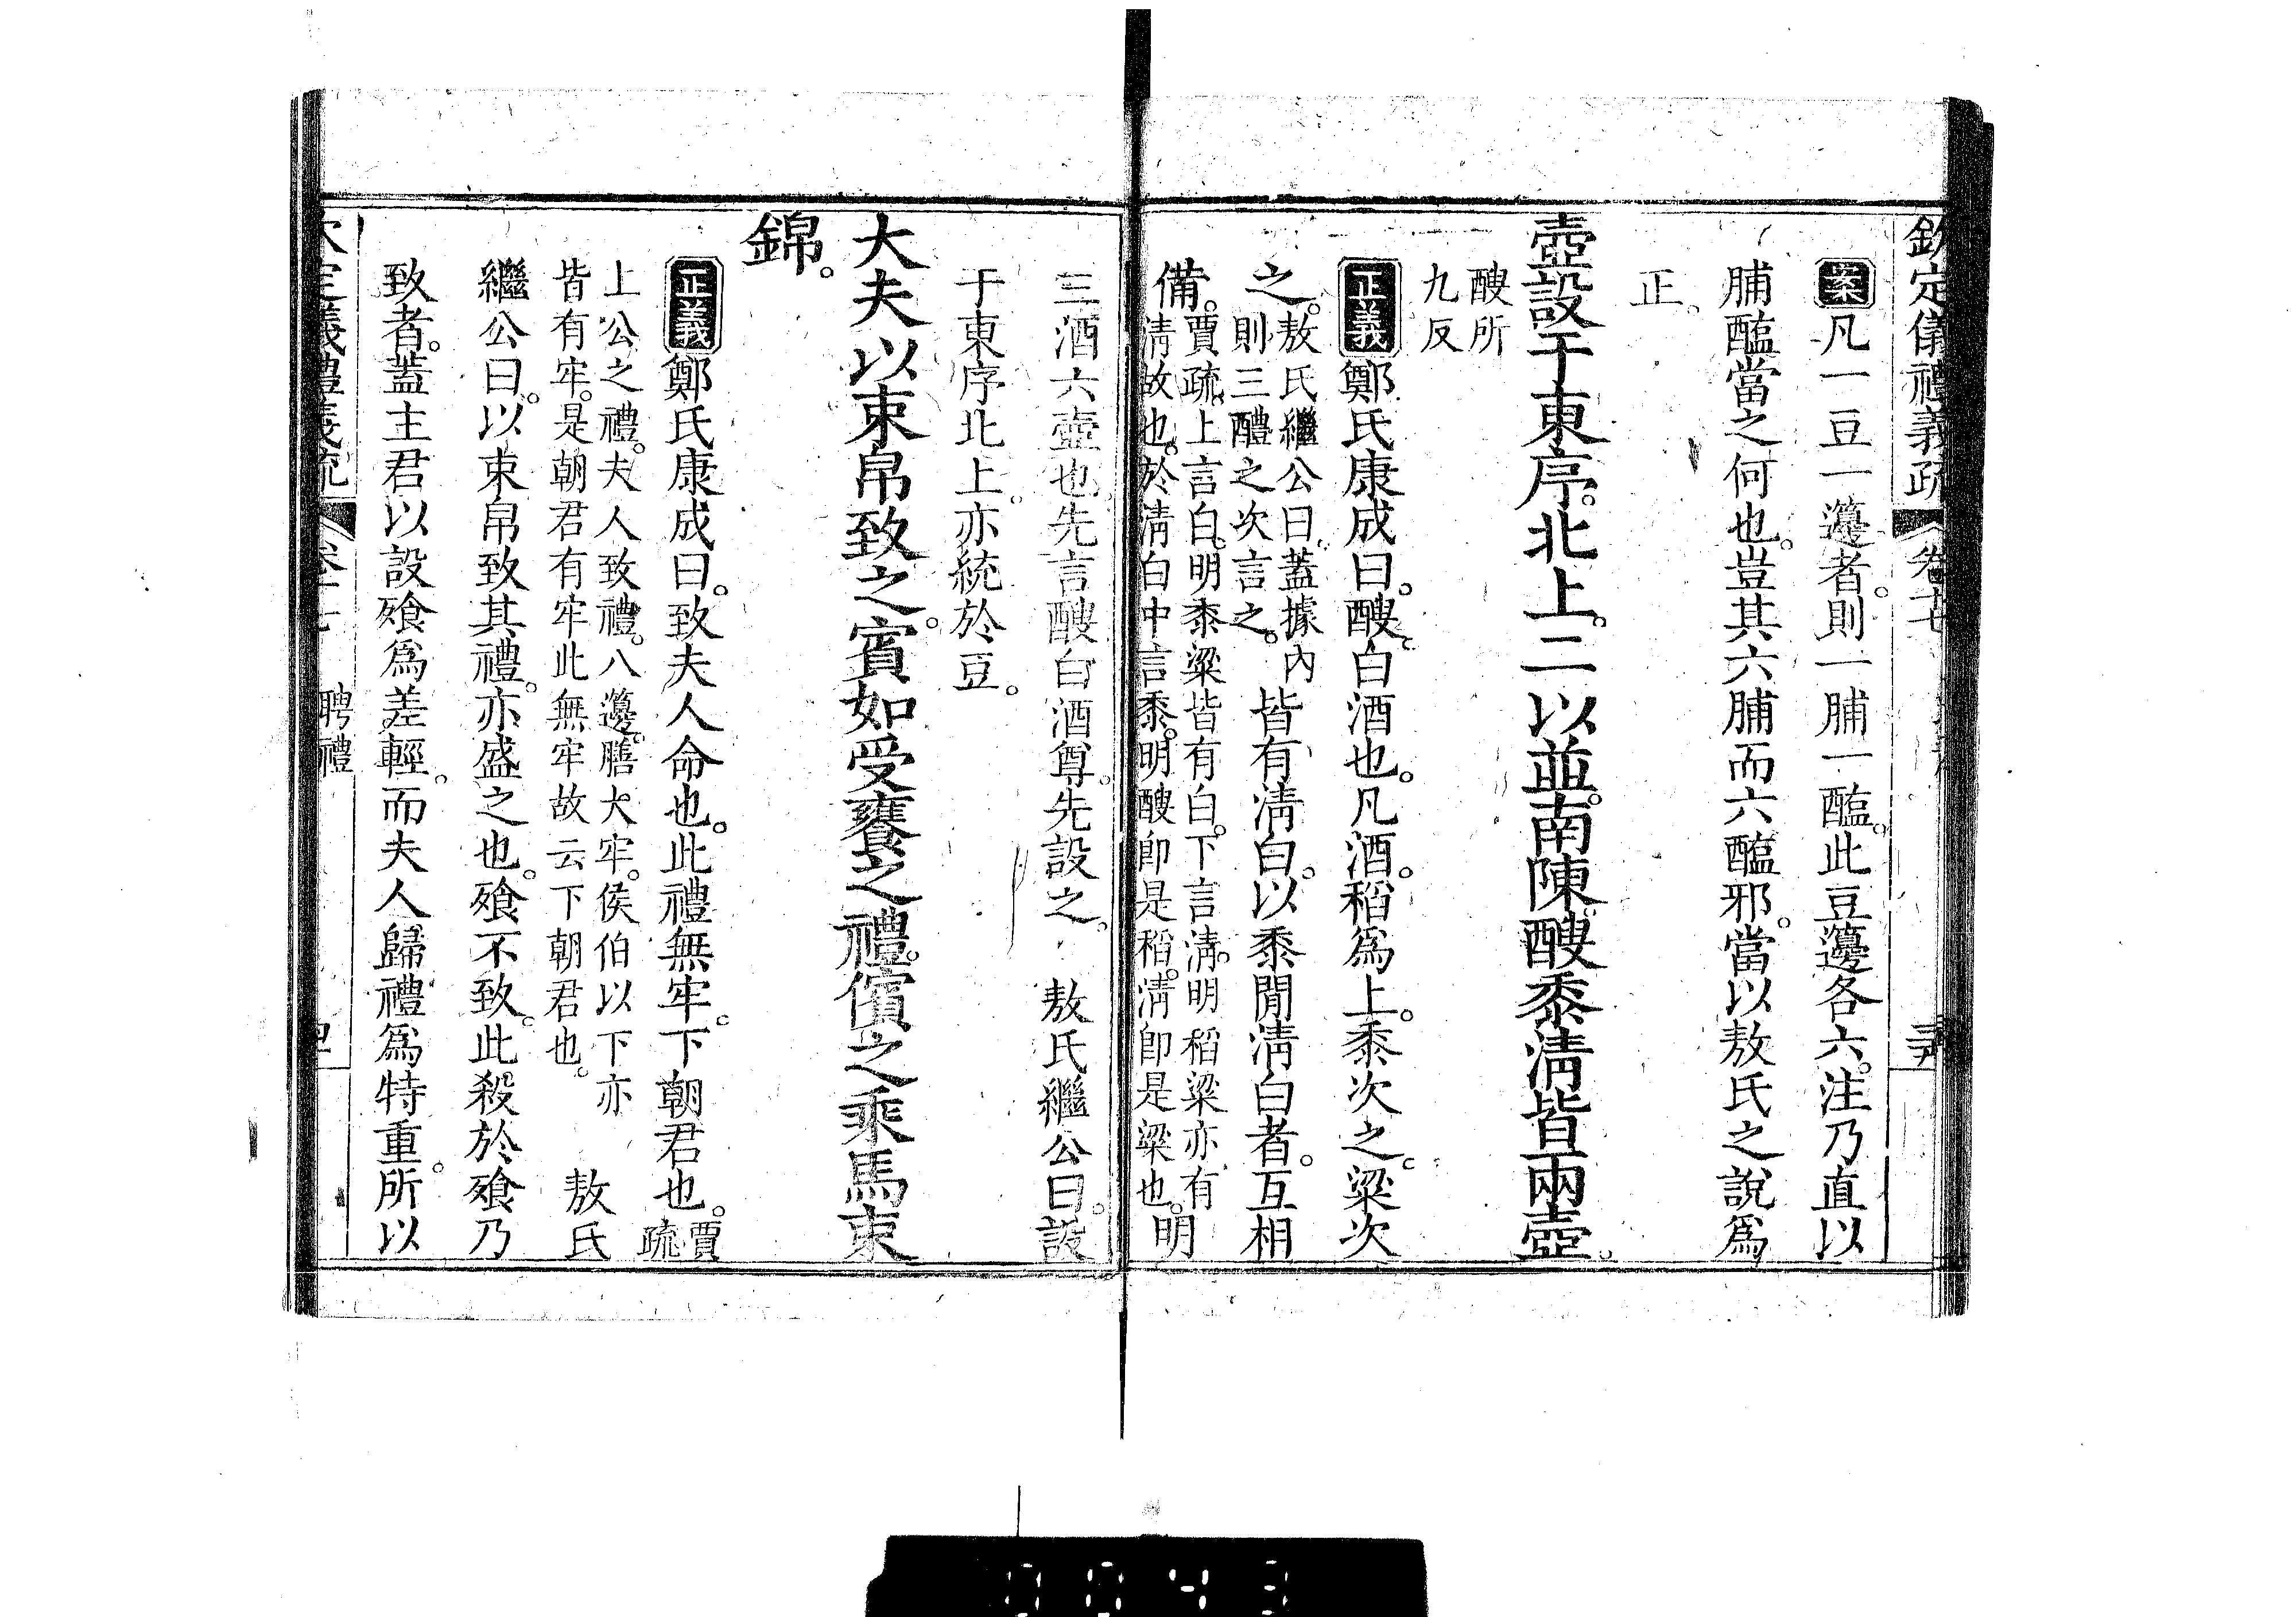 欽定儀禮義疏 卷十七
案凡一豆一籩者。則一脯一醢。此豆籩各六。注乃直以
脯醢當之何也。豈其六脯而六醢邪。當以敖氏之說爲
正。
壺設于東序。北上。二以並。南陳。醙黍淸皆兩壺。
醙所
九反
正義鄭氏康成曰。醙。白酒也。凡酒。稻爲上。黍次之。粱次
之。敖氏繼公曰。蓋據內
則三醴之次言之。
皆有淸白。以黍閒淸白者。互相
備。賈疏。上言白。明黍粱皆有白。下言淸。明稻粱亦有
淸故也。於淸白中言黍。明醙卽是稻。淸卽是粱也。
明
三酒六壺也。先言醙。白酒尊。先設之。 敖氏繼公曰。設
于東序北上。亦統於豆。
大夫以束帛致之。賓如受饔之禮。儐之乘馬束
錦。
正義鄭氏康成曰。致夫人命也。此禮無牢。下朝君也。賈
疏
上公之禮。夫人致禮。八籩。膳大牢。侯伯以下亦
皆有牢。是朝君有牢此無牢故云下朝君也。
敖氏
繼公曰。以束帛致其禮。亦盛之也。飱不致。此殺於飱乃
致者。蓋主君以設飱爲差輕。而夫人歸禮爲特重。所以
聘禮